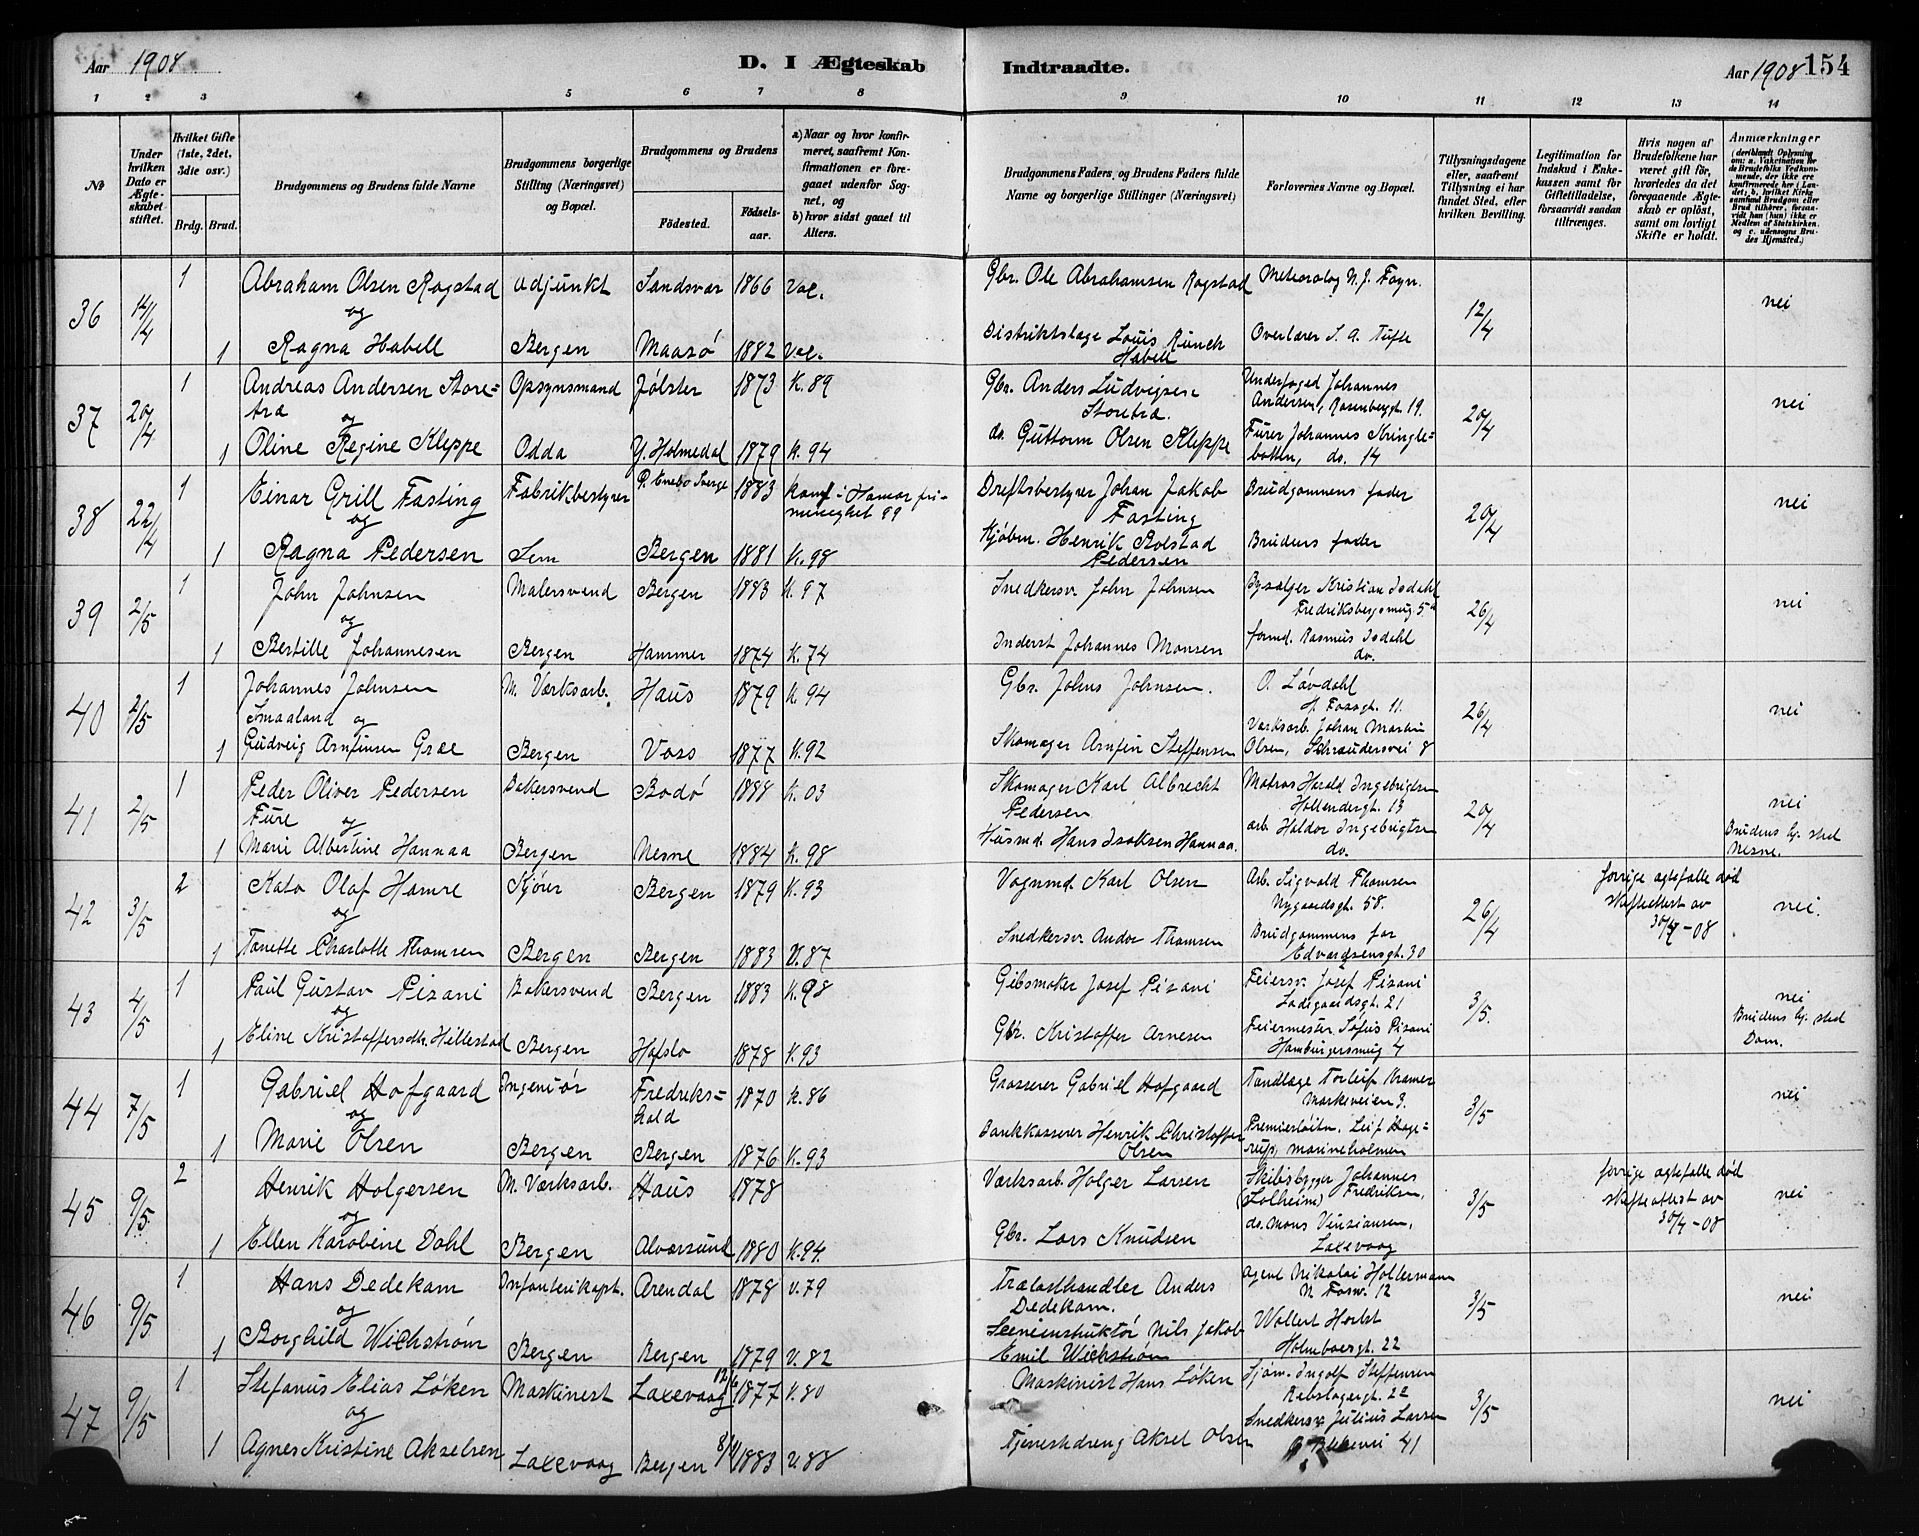 Aar 1908
D. I Ægteskab Indtraadte.
Aar 1908 154
1 2 3 4 5 6 7 8 9 10 11 12 13 14
No
Under hvilken Dato er Ægteskabet stiftet.
Hvilket Gifte (1ste, 2det, 3die osv.)
Brdg. Brud.
Brudgommens og Brudens fulde Navne
Brudgommens borgerlige Stilling (Næringsvei) og Bopæl.
Brudgommens og Brudens
Födested. Födselsaar.
a) Naar og hvor konfirmeret, saafremt Konfirmationen er foregaaet udenfor Sognet, og
b) hvor sidst gaaet til Alters.
Brudgommens Faders, og Brudens Faders fulde Navne og borgerlige Stillinger (Næringsvei)
Forlovernes Navne og Bopæl.
Tillysningsdagene eller, saafremt Tillysning ei har fundet Sted, efter hvilken Bevilling.
Legitimation for Indskud i Ænkekassen samt for Giftetilladelse, forsaavidt saadan tiltrænges.
Hvis nogen af Brudefolkene har været gift för, hvorledes da det foregaaende Ægteskab er oplöst, samt om lovligt Skifte er holdt.
Anmærkninger
36 14/4 1 Abraham Olsen Rogstad adjunkt Sandsvær 1866 Val. Gbr. Ole Abrahamsen Rogstad Meteorolog N. J. Føyn. 12/4 nei
og
1 Ragna Habell Bergen Maasö 1882 Val. Distriktslæge Louis Munch Habell Overlærer S. A. Tufte
37 20/4 1 Andreas Andersen Storetræ Opsynsmand Jølster 1873 K. 89 Gbr. Anders Ludvigsen Storetræ. Underfoged Johannes Andersen, Rosenbergt. 19. 20/4 nei
og
1 Oline Regine Kleppe Odda Y. Holmedal 1879 K. 94 do. Guttorm Olsen Kleppe Furer Johannes Kringlebotten, do. 14
38 22/4 1 Einar Grill Fasting Fabrikbestyrer P. Enebo Sverge 1883 konf. i Hamar frimenighet 99 Driftsbestyrer Johan Jakob Fasting Brudgommens fader 20/4 nei
og
1 Ragna Pedersen Sem Bergen 1881 K. 98 Kjøbm. Henrik Rolstad Pedersen Brudens fader
39 2/5 1 John Johnsen Malersvend Bergen 1883 K. 97 Snedkersv. John Johnsen Bysælger Kristian Isdahl Fredriksbergsmug 5a 26/4 nei
og
1 Bertille Johannesen Bergen Hammer 1874 K. 74 Inderst Johannes Monsen formd. Rasmus Isdahl do.
40 2/5 1 Johannes Johnsen Smaaland M. Værksarb. Haus 1879 K. 94 Gbr. Johns Johnsen. O. Løvdahl H. Fossgt. 11. 26/4 nei
og
1 Gudveig Arnfinsen Græe Bergen Voss 1877 K. 92 Skomager Arnfin Steffensen Værksarb. Johan Martin Olsen, Schrøudersvei 8
41 2/5 1 Peder Oliver Pedersen Fure Bakersvend Bodø 1888 K. 03 Skomager Karl Albrecht Pedersen Matros Harald Ingebrigtsen Hollendergt. 13 20/4 nei
og
1 Marie Albertine Hannaa Bergen Nesne 1884 K. 98 Husmd. Hans Isaksen Hannaa. arb. Haldor Ingebrigtsen do. Brudens hj. sted Nesne.
42 3/5 2 Kato Olaf Hamre Kjører Bergen 1879 K. 93 Vognmd. Karl Olsen Arb. Sigvald Thomsen Nygaardsgt. 58. 26/4 forrige egtefælle død skifteattest av 30/4-08 nei.
og
1 Tonette Charlotte Thomsen Bergen Bergen 1883 V. 87 Snedkersv. Andor Thomsen Brudgommens far Edvardsensgt. 30
43 4/5 1 Paul Gustav Pizani Bakersvend Bergen 1883 K. 98 Gibsmaker Josef Pizani Feiersv. Josef Pizani Ladegaardsgt. 21 3/5. nei
og
1 Eline Kristoffersdtr. Hillestad Bergen Hafslo 1878 K. 93 Gbr. Kristoffer Arnesen Feiermester Sofus Pizani Hamburgersmug 4 Brudens hj. sted Dom.
44 7/5 1 Gabriel Hofgaard Ingeniør Fredrikshald 1870 K. 86 Grosserer Gabriel Hofgaard Tandlæge Torleif Kramer Markeveien 3. 3/5 nei
og
1 Marie Olsen Bergen Bergen 1876 K. 93 Bankkasserer Henrik Christoffer Olsen Premierløitn. Leif Hagerup, marineholmen
45 9/5 2 Henrik Holgersen M. Værksarb. Haus 1878 Værksarb. Holger Larsen Skibsbygger Johannes (Solheim) Fredriksen, 3/5 forrige egtefælle død skifteattest av 30/4-08 nei
og
1 Ellen Karobine Dahl Bergen Alversund 1880 K. 94. Gbr. Lars Knudsen do. Mons Vinsiansen, Laxevaag
46 9/5 1 Hans Dedekam Infanterikapt. Arendal 1878 V. 79 Trælasthandler Anders Dedekam. Agent Nikolai Holtermann N Fosw. 12 3/5 nei
og
1 Borghild Wichstrøm Bergen Bergen 1879 V. 82 Sceneinstruktør Nils Jakob Emil Wichstrøm Wollert Herbst Holmboergt. 22
47 9/5 1 Stefanus Elias Løken Maskinist Laxevaag 1877 K. 80 Maskinist Hans Løken Sjøm. Ingolf Steffensen Rebslagergt. 22 3/5 nei
og
1 Agnes Kristine Akselsen Laxevaag Bergen 1883 V. 88 Tjenestedreng Aksel Olsen Snedkersv. Julius Larsen 41